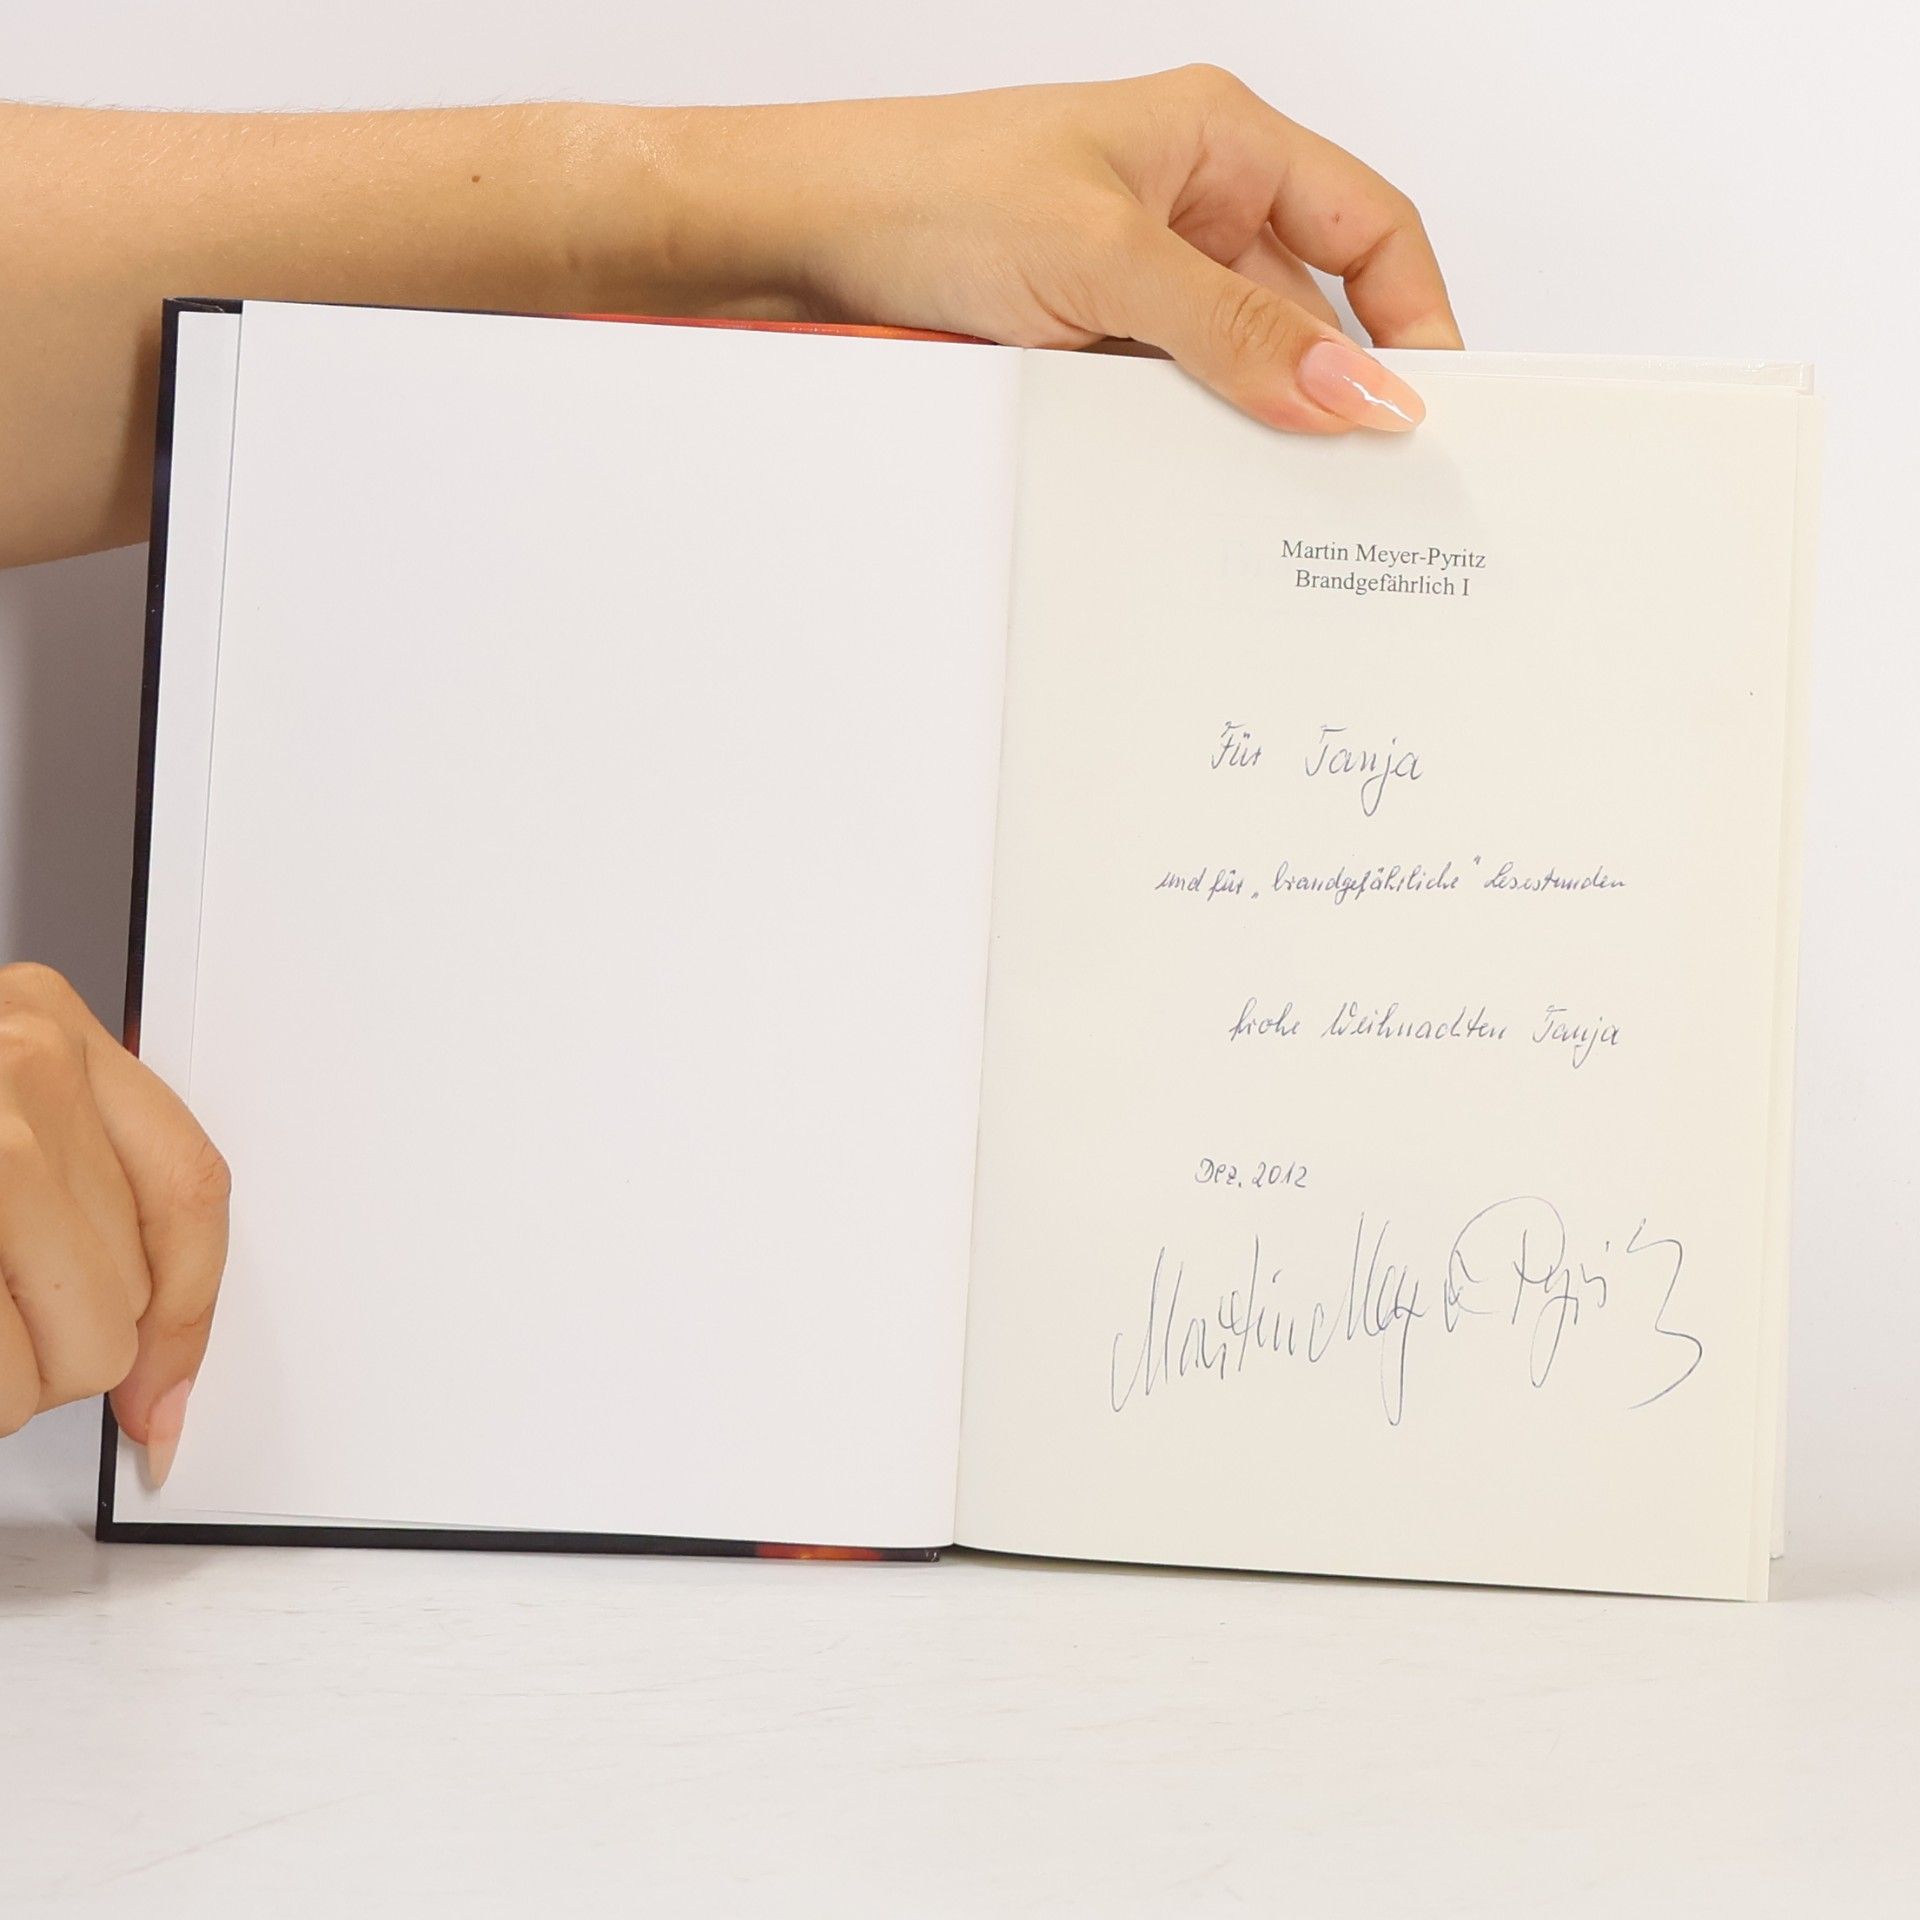 Martin Meyer-Pyritz
Brandgefährlich I
Für Tanja
und für „brandgefährliche" Lesestunden
frohe Weihnachten Tanja
Dez. 2012
Martin Meyer-Pyritz